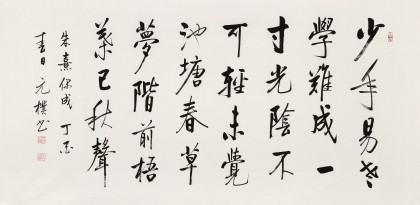 少年易老
學難成一
寸光陰不
可輕未覺
池塘春草
夢階前梧
葉已秋聲
朱熹偶成 丁酉
春日 元樸書